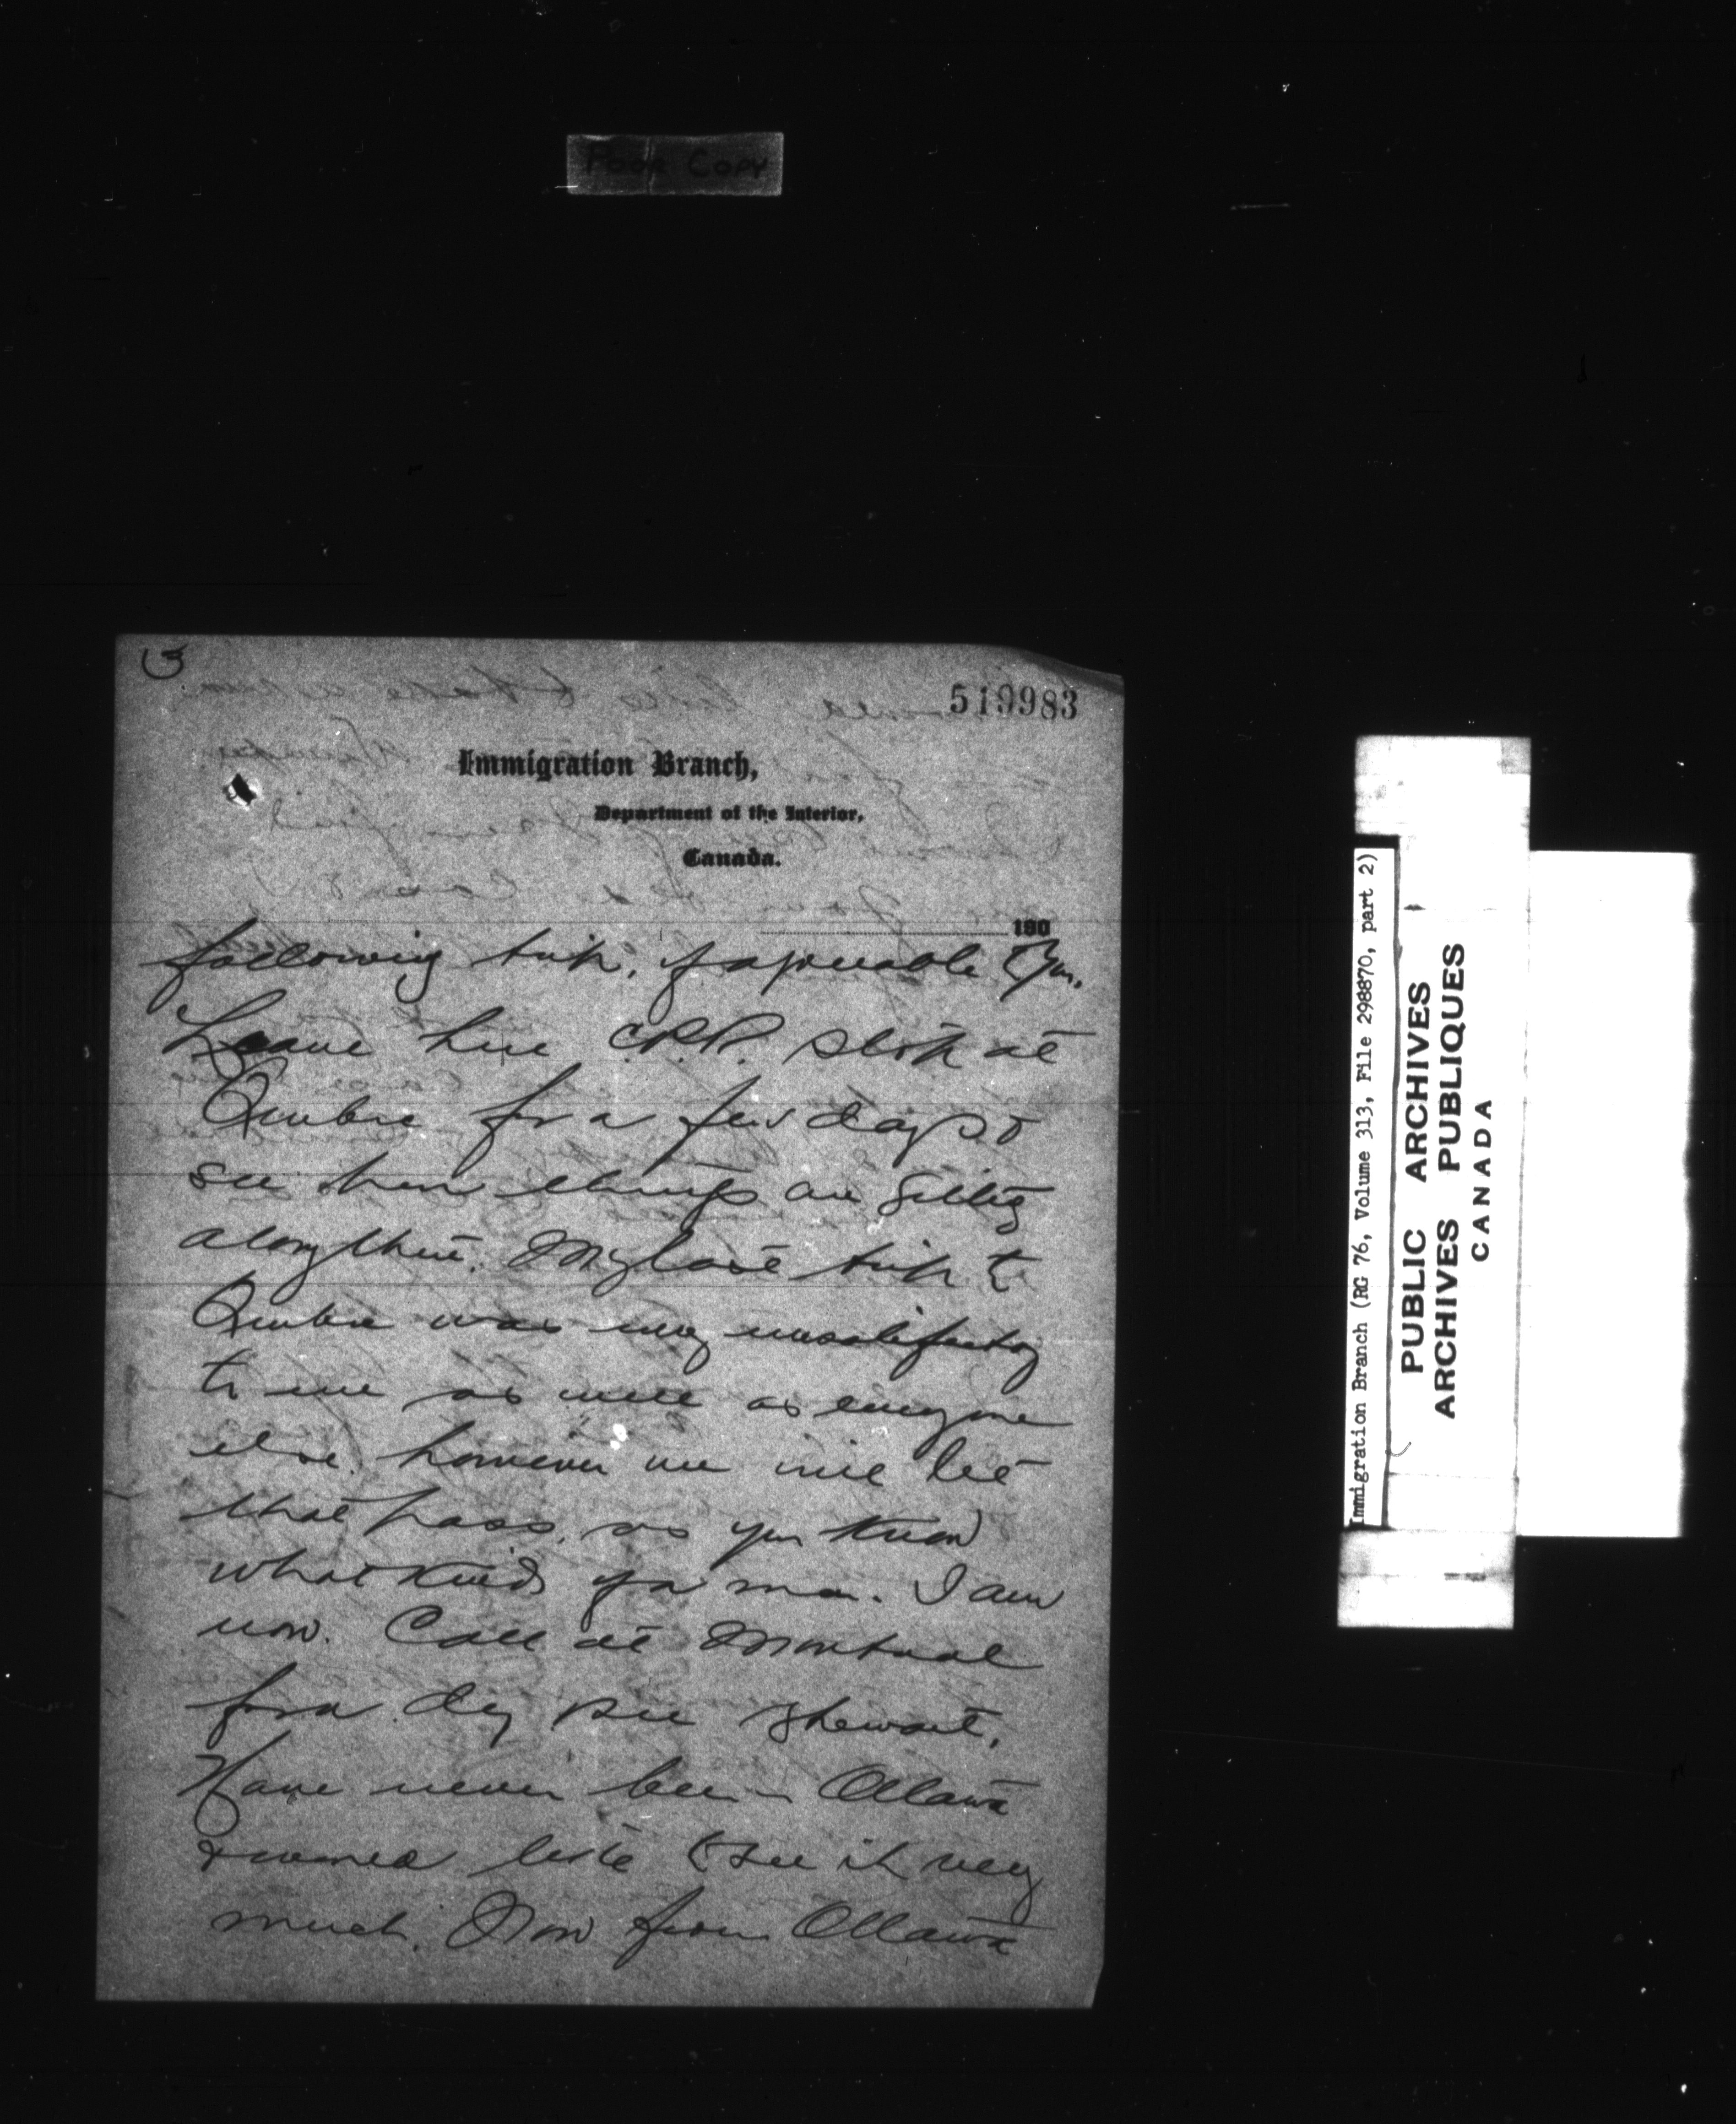 Poor Copy
3
519983
Immigration Branch,
Department of the Interior,
Canada.
190
following trip, if agreeable to you.
Leave here C.P.R. stop at
Quebec for a few days &
see how things are getting
along there. My last trip to
Quebec was very unsatisfactory
to me as well as everyone
else. however we will let
that pass, as you know
what kind of a man I am
now. Call at Montreal
for a day see Stewart.
Have never been in Ottawa
& would like to see it very
much. Now from Ottawa
Immigration Branch (RG 76, Volume 313, File 298870, part 2)
PUBLIC ARCHIVES
ARCHIVES PUBLIQUES
CANADA